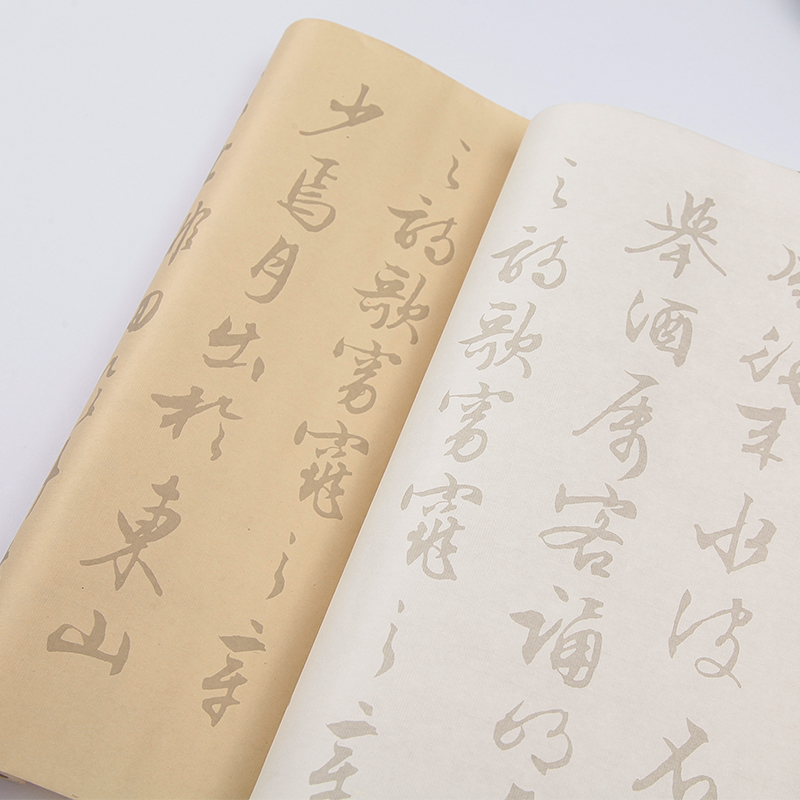 徐來水波不
舉酒屬客誦明
之詩歌窈窕之章
之詩歌窈窕之章
少焉月出於東山